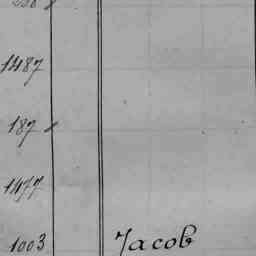 1487
187
1477
1003 Jacob